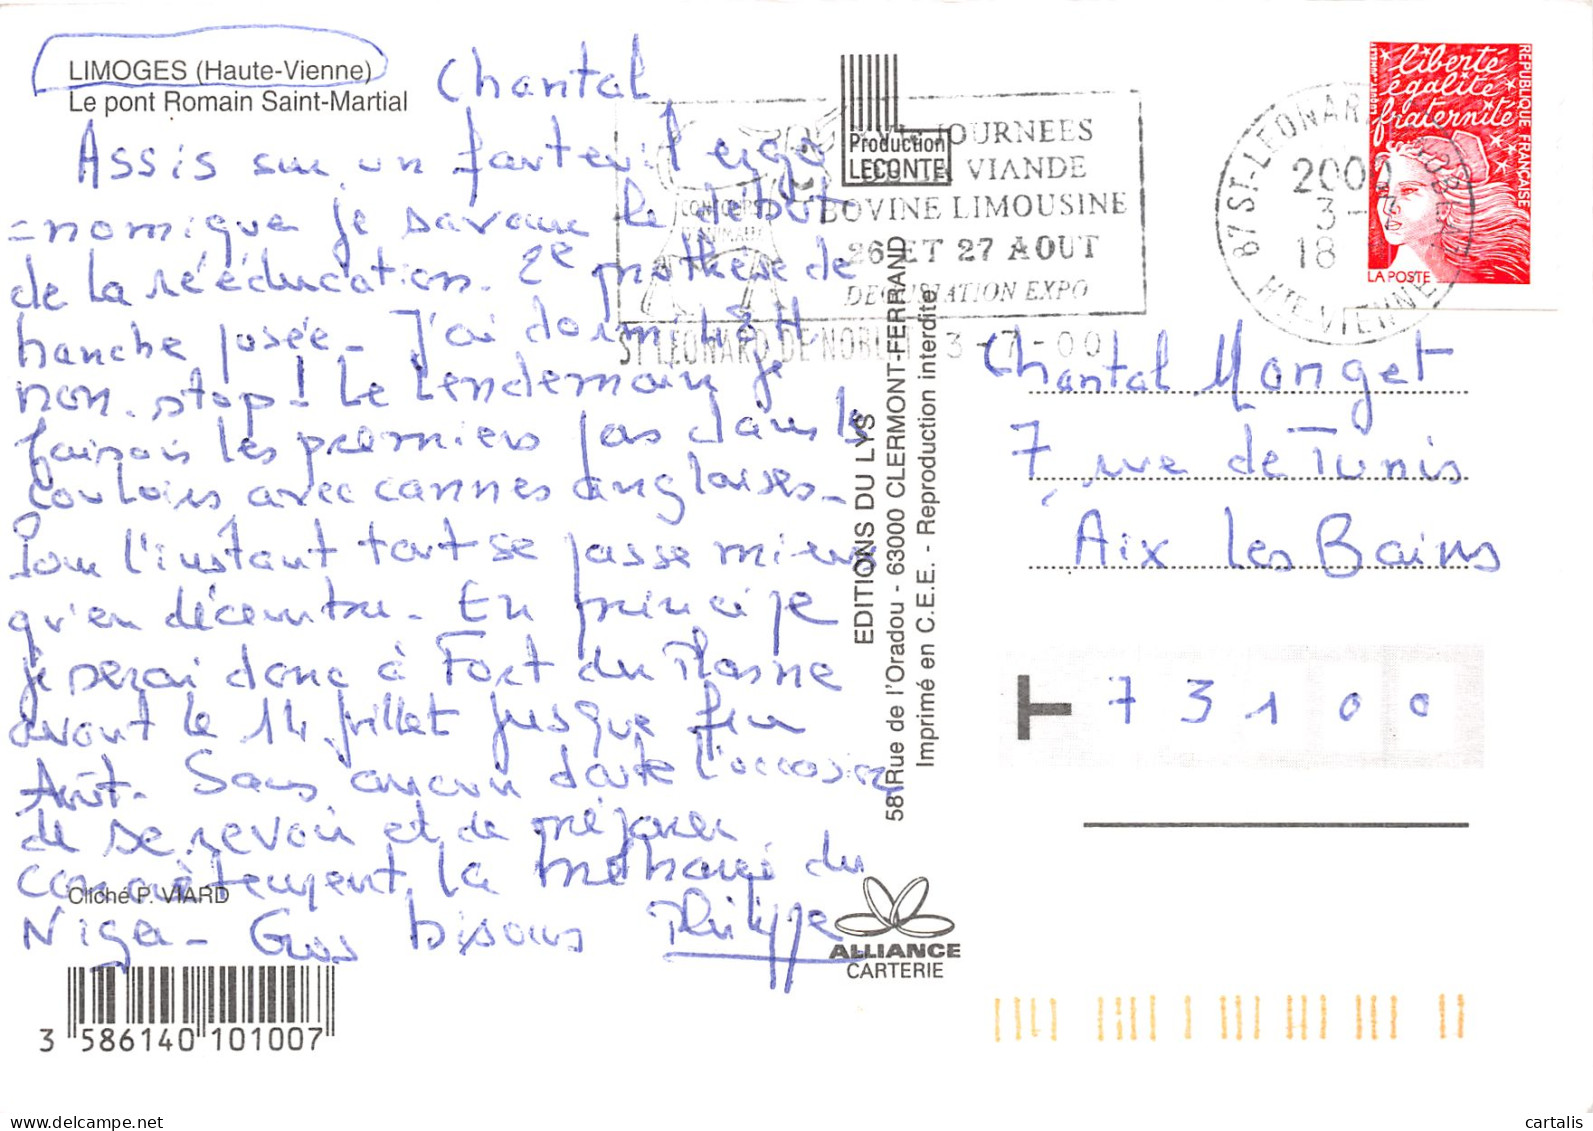 LIMOGES (Haute-Vienne)
Le pont Romain Saint-Martial
Chantal,
Assis sur un fauteuil ergo
=nomique je savoure le début
de la rééducation. 2e prothèse de
hanche posée - J'ai dormi 48 H
non. stop! Le lendemain je
faisais les premiers pas dans le
couloirs avec cannes anglaises -
Pour l'instant tout se passe mieux
qu'en décembre. En principe
je serai donc à Fort du Plasne
avant le 14 juillet jusque fin
Août. Sans aucun doute l'occasion
de se revoir et de préparer
concrètement la
Niger - Gros bisous Philippe
Cliché P. VIARD
3 586140 101007
Production
LECONTE
EDITIONS DU LYS
58 Rue de l'Oradou - 63000 CLERMONT-FERRAND
Imprimé en C.E.E. - Reproduction interdite
ALLIANCE
CARTERIE
JOURNEES
VIANDE
BOVINE LIMOUSINE
26 ET 27 AOUT
DEGUSTATION EXPO
CONCOURS
D'ANIMAUX
ST LEONARD DE NOBLAT 3-7-00
87 ST-LEONARD-DE-NOBLAT
2000
3-7
18
HTE-VIENNE
liberté
égalité
fraternité
REPUBLIQUE FRANÇAISE
LA POSTE
Chantal Monget
7 rue de Tunis
Aix les Bains
73100
www.delcampe.net
cartalis